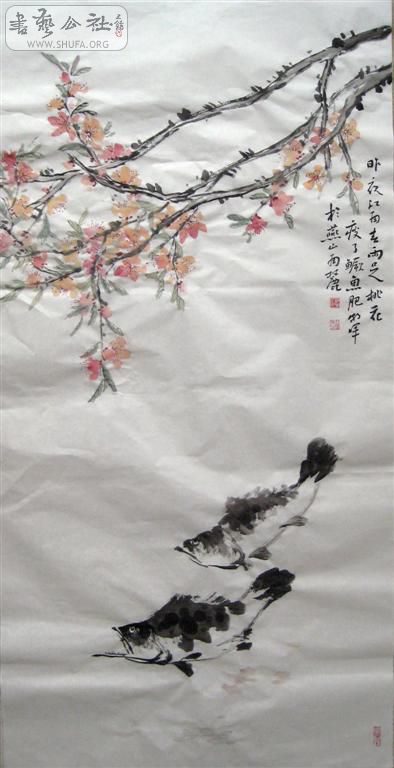 書藝公社
WWW.SHUFA.ORG
昨夜江南春雨足桃花
瘦了鱖魚肥
於燕山西麓